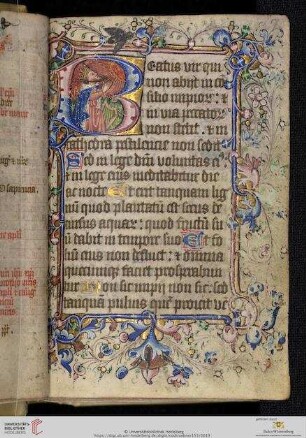 Beatus vir qui
non abijt in co
silio impior: ⁊
in via pccator
non stetit. ⁊ in
cathedra pestilencie non sedit
Sed in lege dni voluntas ei'
in lege eius meditabitur die
ac nocte Et erit tanquam lig
num quod plantatum est secus de
cursus aquar: quod fructu su
um dabit in tempore suo Et fo
lium eius non defluet: ⁊ omnia
quecumque faciet prosperabun
tur Non sic impij non sic: sed
tanquam puluis que proicit ve
UNIVERSITÄTS-
BIBLIOTHEK
HEIDELBERG
© Universitätsbibliothek Heidelberg
Baden-Württemberg